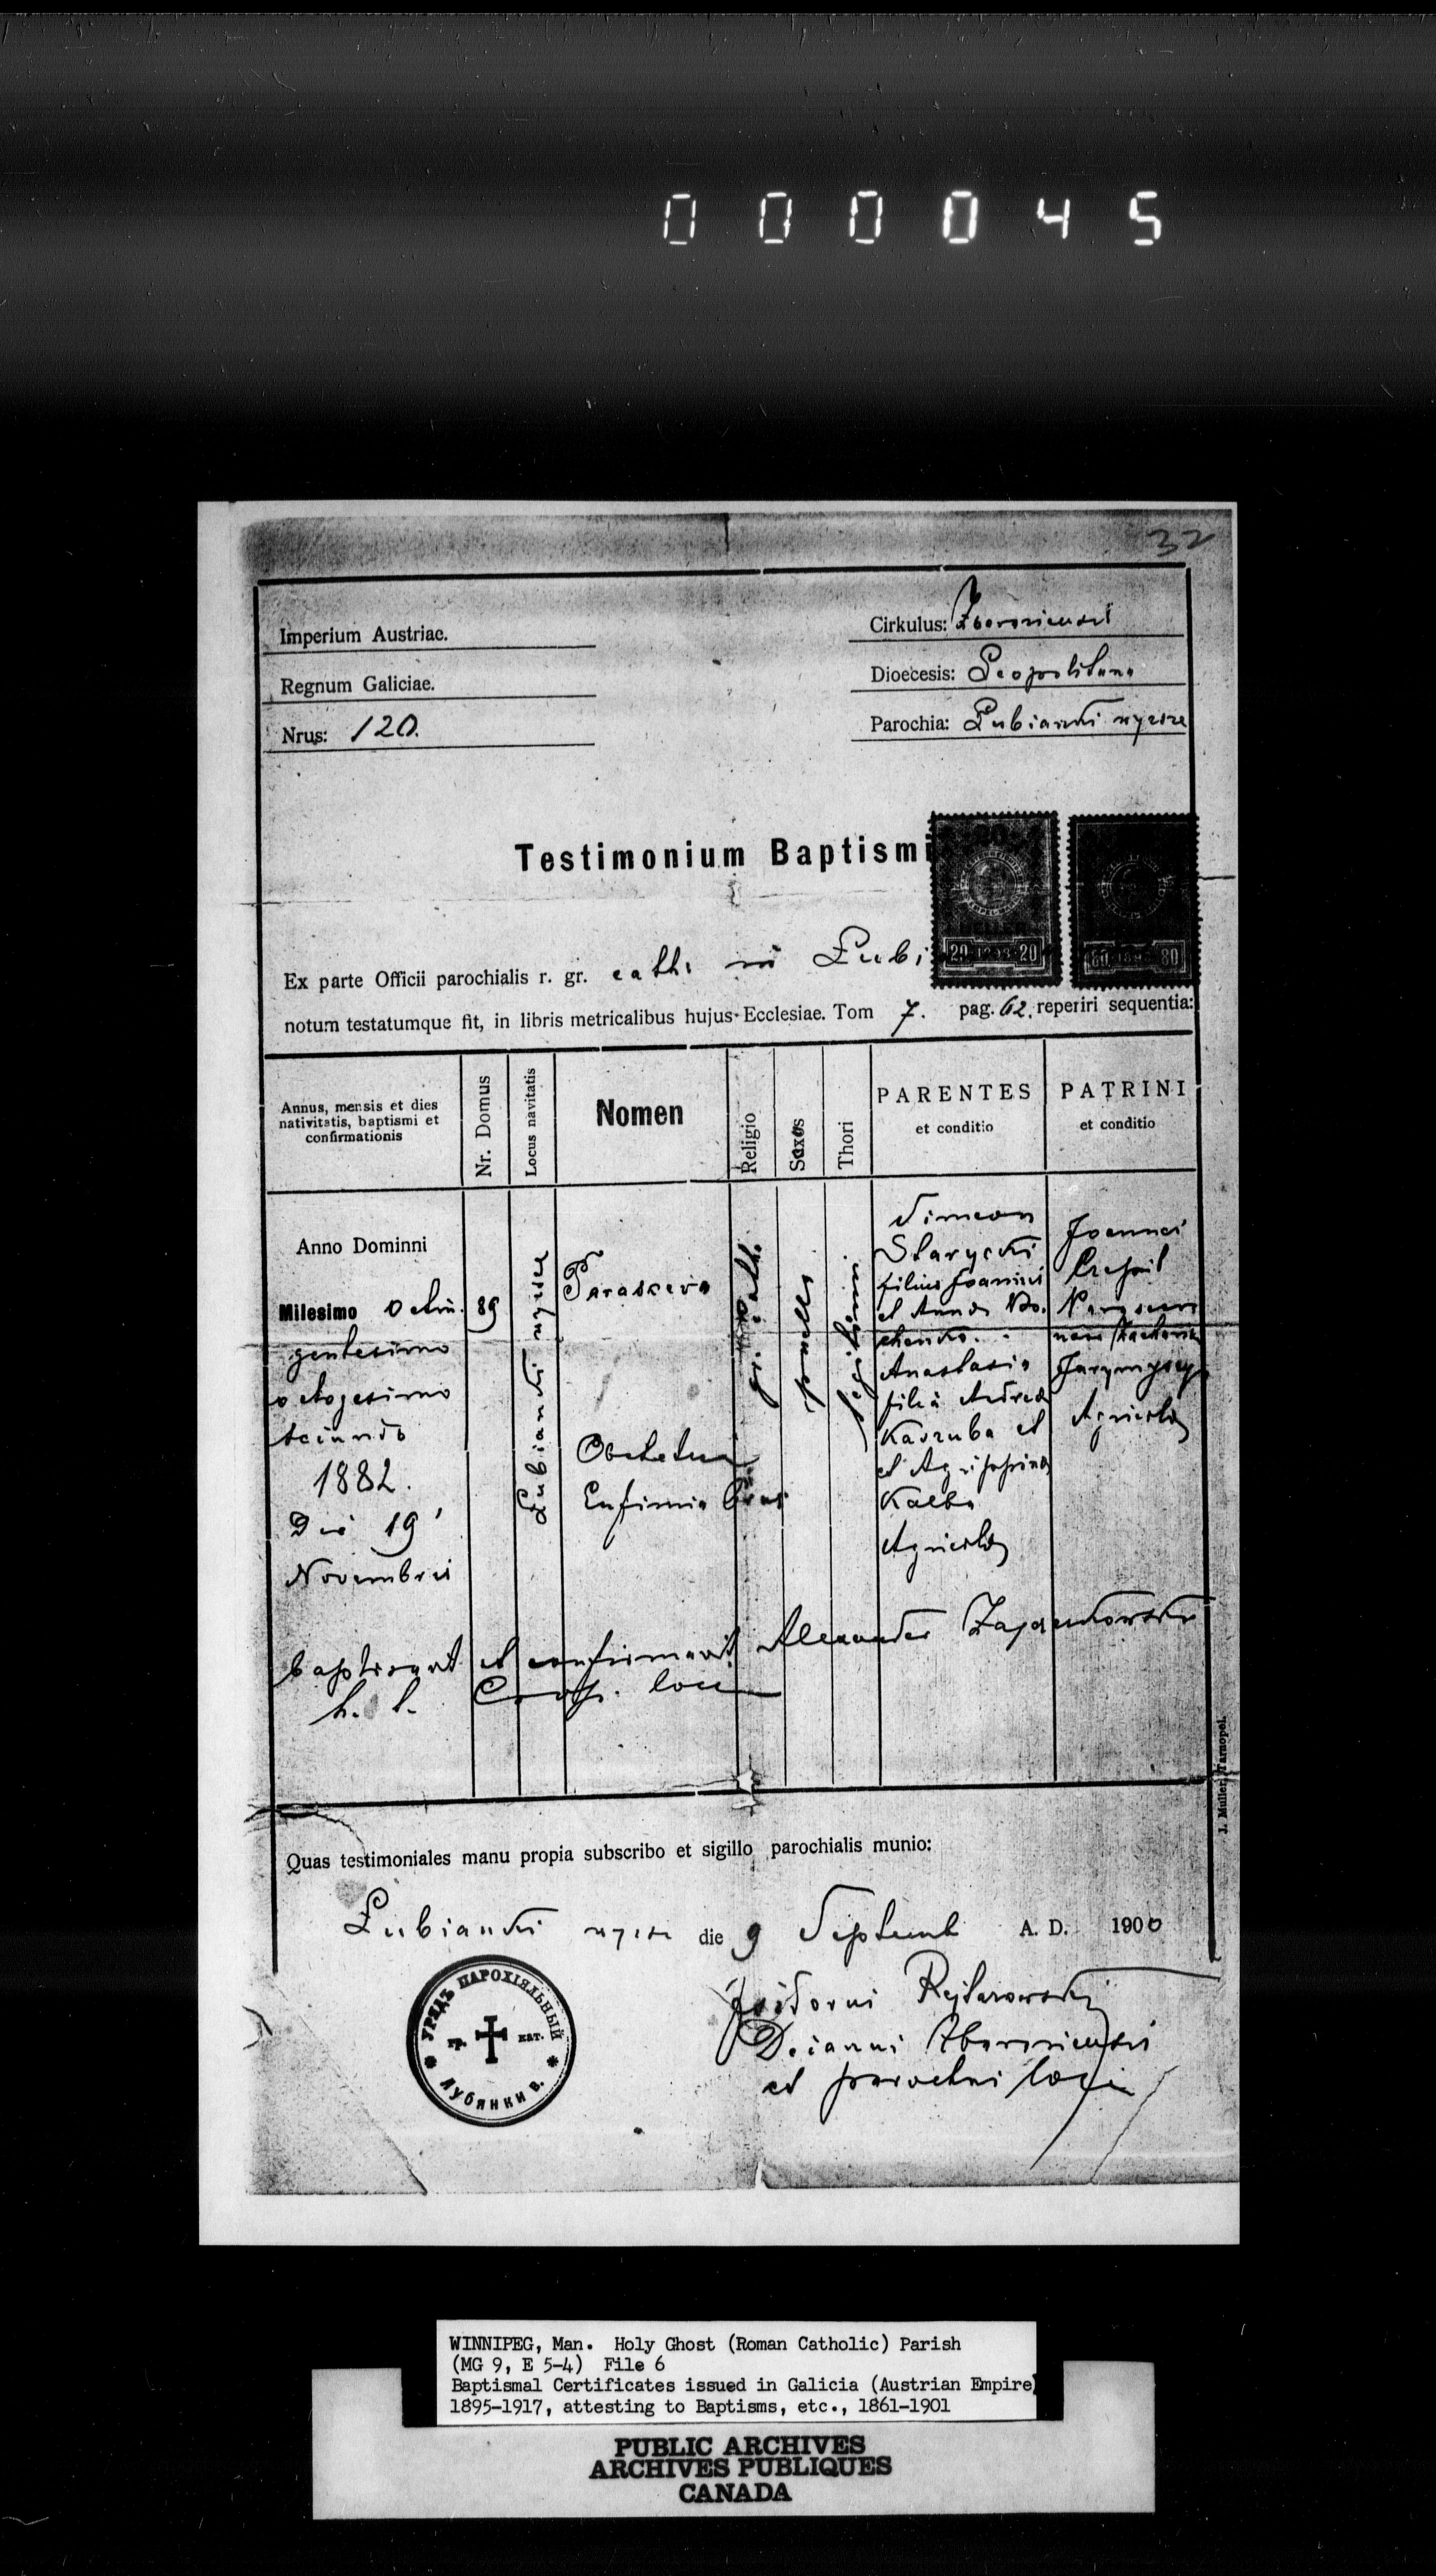 000045
32
Imperium Austriac.
Cirkulus: Zboroviensis
Regnum Galiciae.
Dioecesis: Leopolitana
Nrus: 120.
Parochia: Łubianki wyższe
Testimonium Baptismi
20 1898 20
80 1898 80
Ex parte Officii parochialis r. gr. cath. in Łubi
notum testatumque fit, in libris metricalibus hujus Ecclesiae. Tom 7. pag. 62. reperiri sequentia:
Annus, mensis et dies
nativitatis, baptismi et
confirmationis
Nr. Domus
Locus navitatis
Nomen
Religio
Sexus
Thori
PARENTES
et conditio
PATRINI
et conditio
Anno Dominni
Milesimo octin
gentesimo
octogesimo
secundo
1882.
Die 19
Novembris
89
Łubianki wyższe
Parasceva
Obstetrix
Eufimia
gr. cath.
puella
legitimi
Simeon
Starycki
filius Joannis
et Anna
Anastasia
filia Andreae
Kadzuba et
et Agrippina
Kalba
Agricolae
Joannes
Agricolae
baptisavit et confirmavit Alexander
h. l. Coop. loci
J. Muller, Tarnopol.
Quas testimoniales manu propia subscribo et sigillo parochialis munio:
Łubianki wyższe die 9 Septemb A. D. 1900
УРЯДЪ ПАРОХІЯЛЬНЫЙ
гр. кат.
ЛУБЯНКИ В.
Isidorus
Decanus Zboroviensis
et parochus loci
WINNIPEG, Man. Holy Ghost (Roman Catholic) Parish
(MG 9, E 5-4) File 6
Baptismal Certificates issued in Galicia (Austrian Empire)
1895-1917, attesting to Baptisms, etc., 1861-1901
PUBLIC ARCHIVES
ARCHIVES PUBLIQUES
CANADA